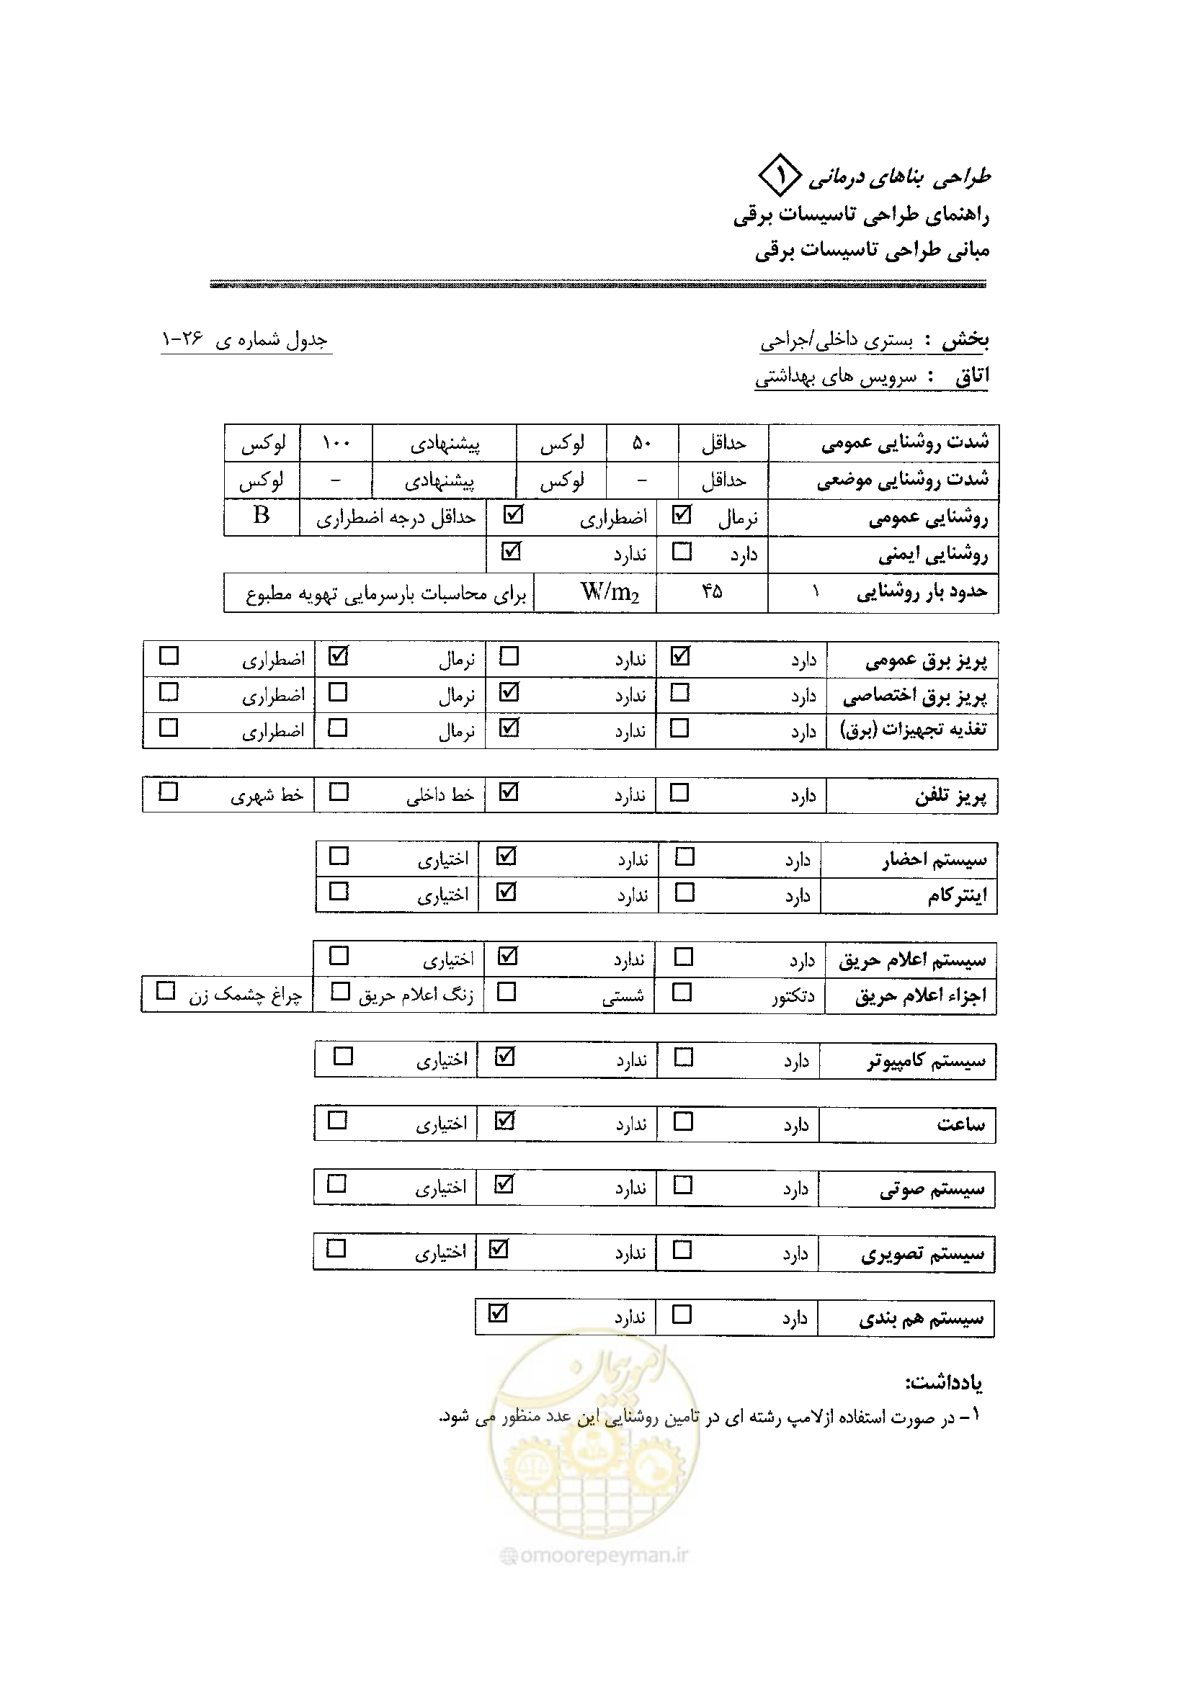 طراحی بناهای درمانی ۱
راهنمای طراحی تاسیسات برقی
مبانی طراحی تاسیسات برقی
بخش : بستری داخلی/جراحی
جدول شماره ی ۲۶-۱
اتاق : سرویس های بهداشتی
شدت روشنایی عمومی حداقل ۵۰ لوکس پیشنهادی ۱۰۰ لوکس
شدت روشنایی موضعی حداقل - لوکس پیشنهادی - لوکس
روشنایی عمومی نرمال ☑ اضطراری ☑ حداقل درجه اضطراری B
روشنایی ایمنی دارد ☐ ندارد ☑
حدود بار روشنایی ۱ ۴۵ W/m2 برای محاسبات بارسرمایی تهویه مطبوع
پریز برق عمومی دارد ☑ ندارد ☐ نرمال ☑ اضطراری ☐
پریز برق اختصاصی دارد ☐ ندارد ☑ نرمال ☐ اضطراری ☐
تغذیه تجهیزات (برق) دارد ☐ ندارد ☑ نرمال ☐ اضطراری ☐
پریز تلفن دارد ☐ ندارد ☑ خط داخلی ☐ خط شهری ☐
سیستم احضار دارد ☐ ندارد ☑ اختیاری ☐
اینترکام دارد ☐ ندارد ☑ اختیاری ☐
سیستم اعلام حریق دارد ☐ ندارد ☑ اختیاری ☐
اجزاء اعلام حریق دتکتور ☐ شستی ☐ زنگ اعلام حریق ☐ چراغ چشمک زن ☐
سیستم کامپیوتر دارد ☐ ندارد ☑ اختیاری ☐
ساعت دارد ☐ ندارد ☑ اختیاری ☐
سیستم صوتی دارد ☐ ندارد ☑ اختیاری ☐
سیستم تصویری دارد ☐ ندارد ☑ اختیاری ☐
سیستم هم بندی دارد ☐ ندارد ☑
یادداشت:
۱- در صورت استفاده ازلامپ رشته ای در تامین روشنایی این عدد منظور می شود.
امور پیمان
@omoorepeyman.ir